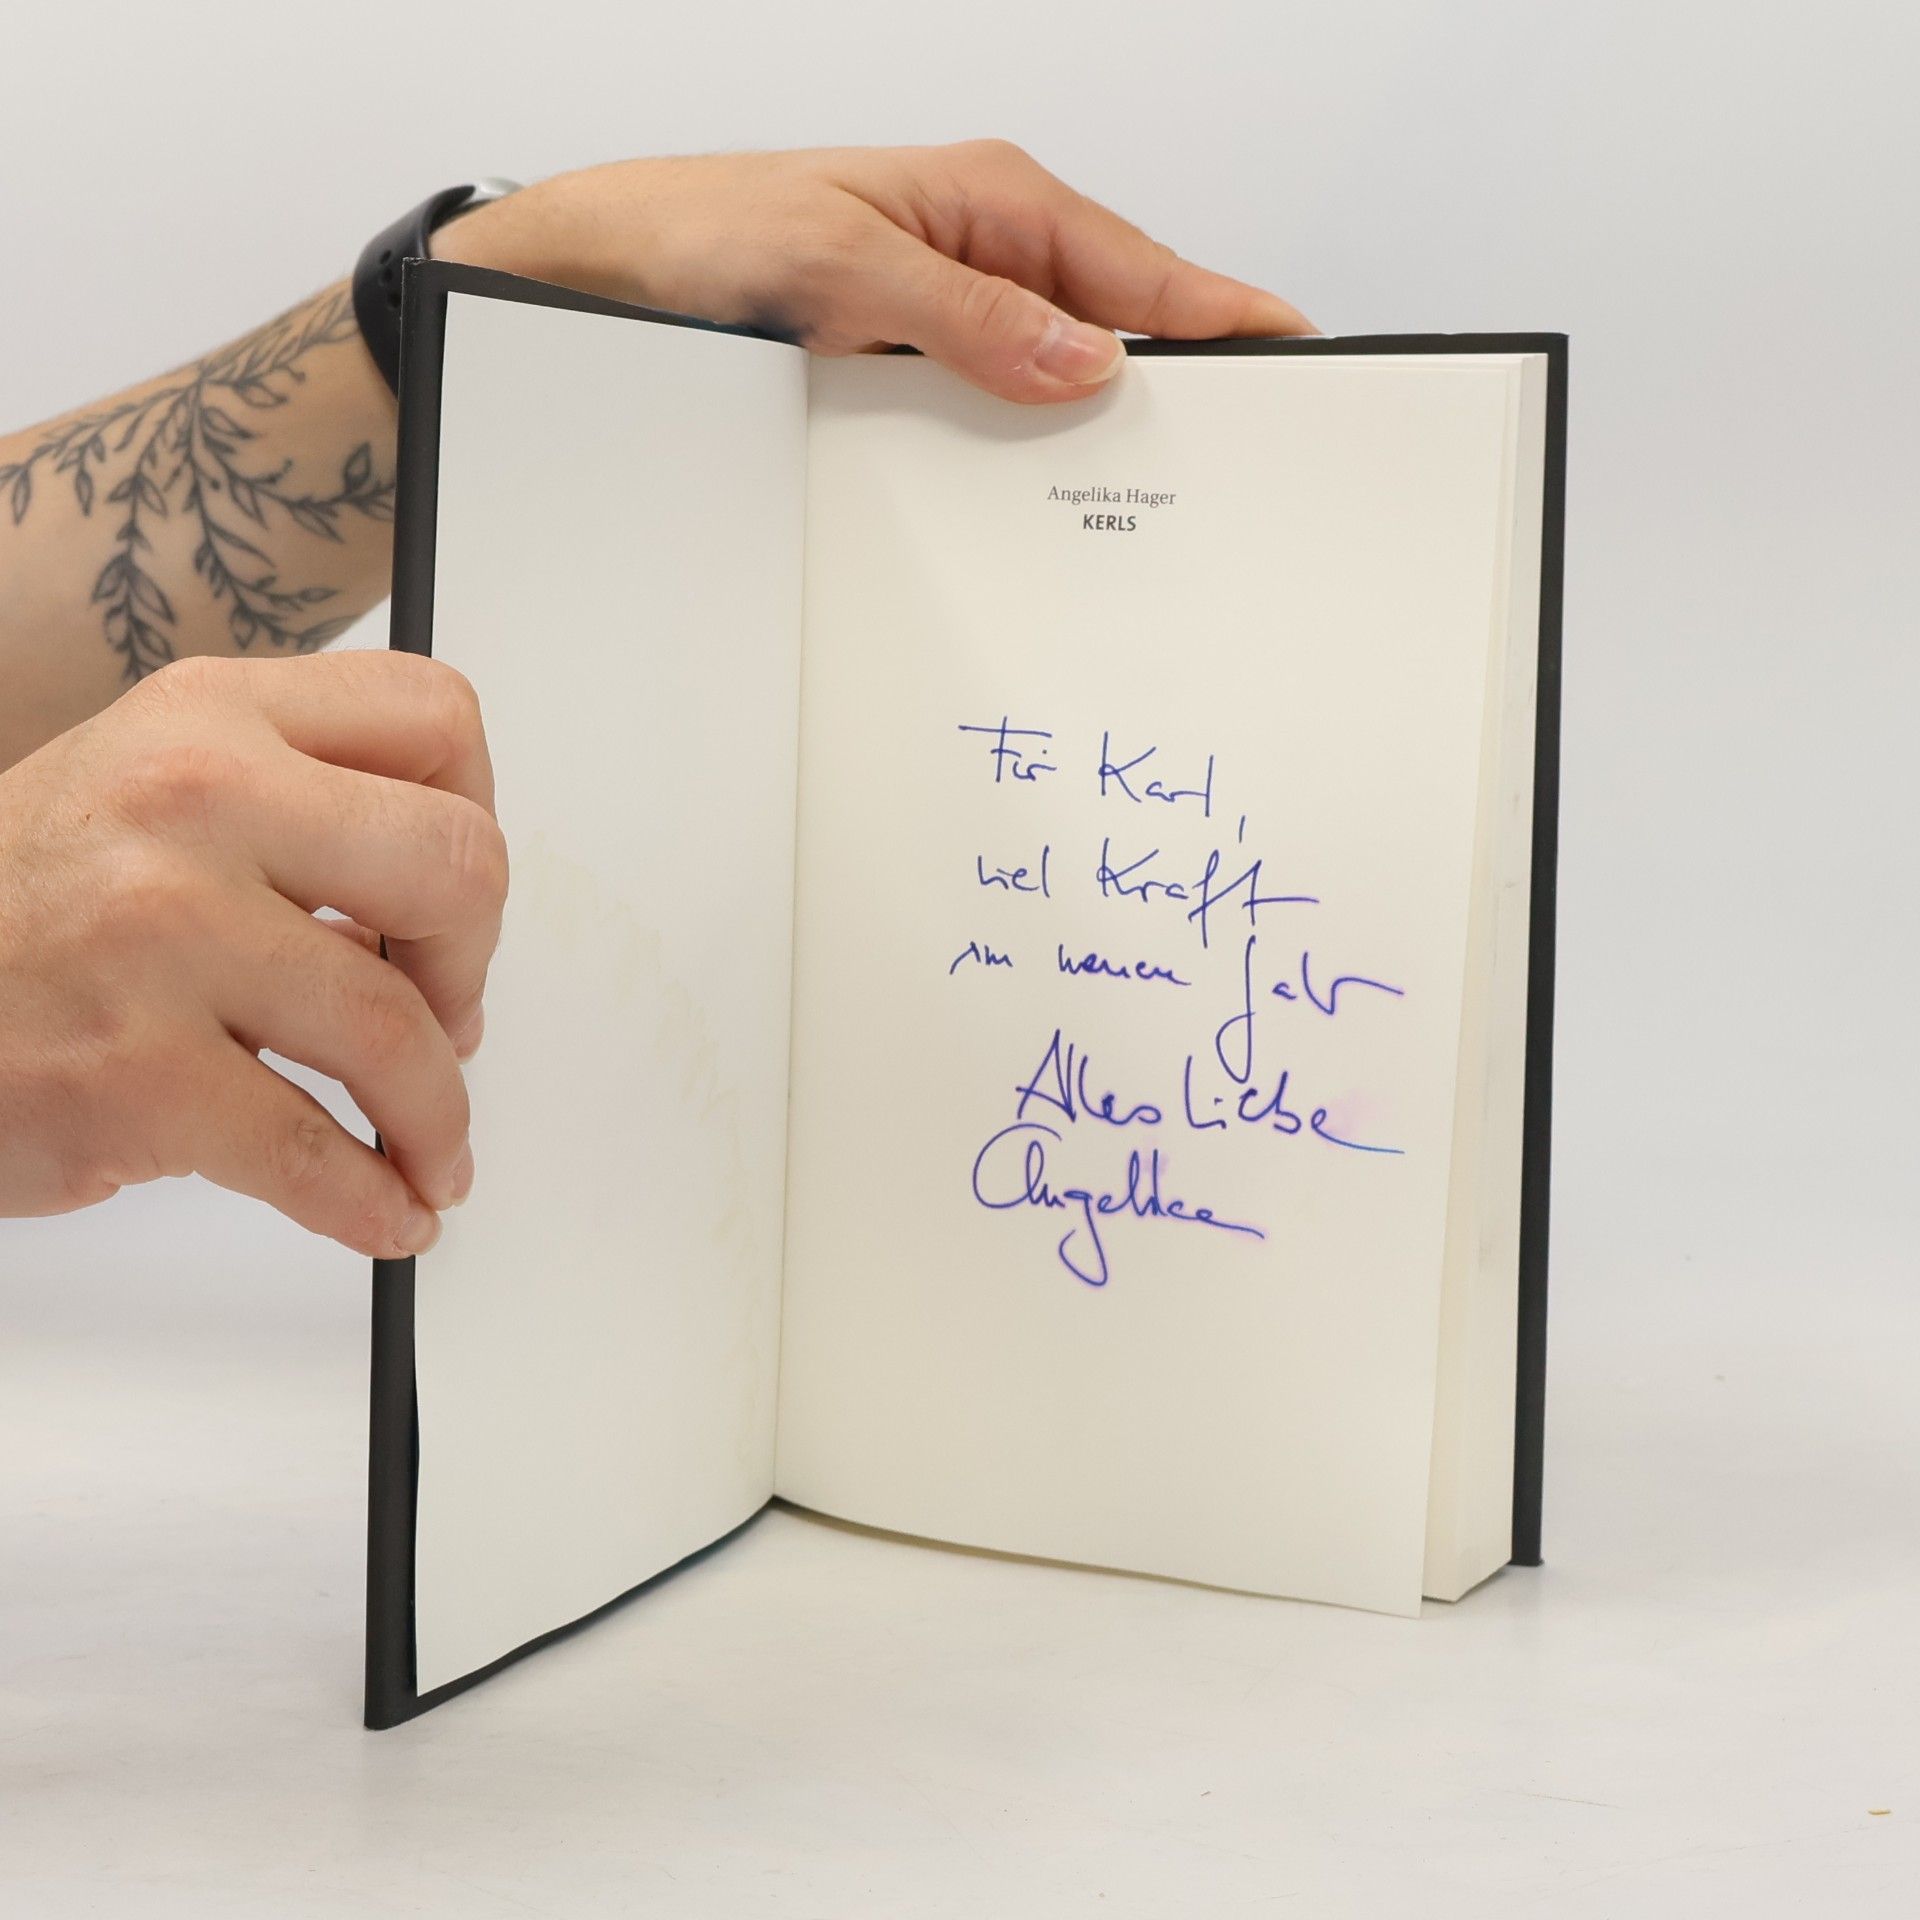 Angelika Hager
KERLS
Für Karl,
viel Kraft
im neuen Jahr
Alles Liebe
Angelika